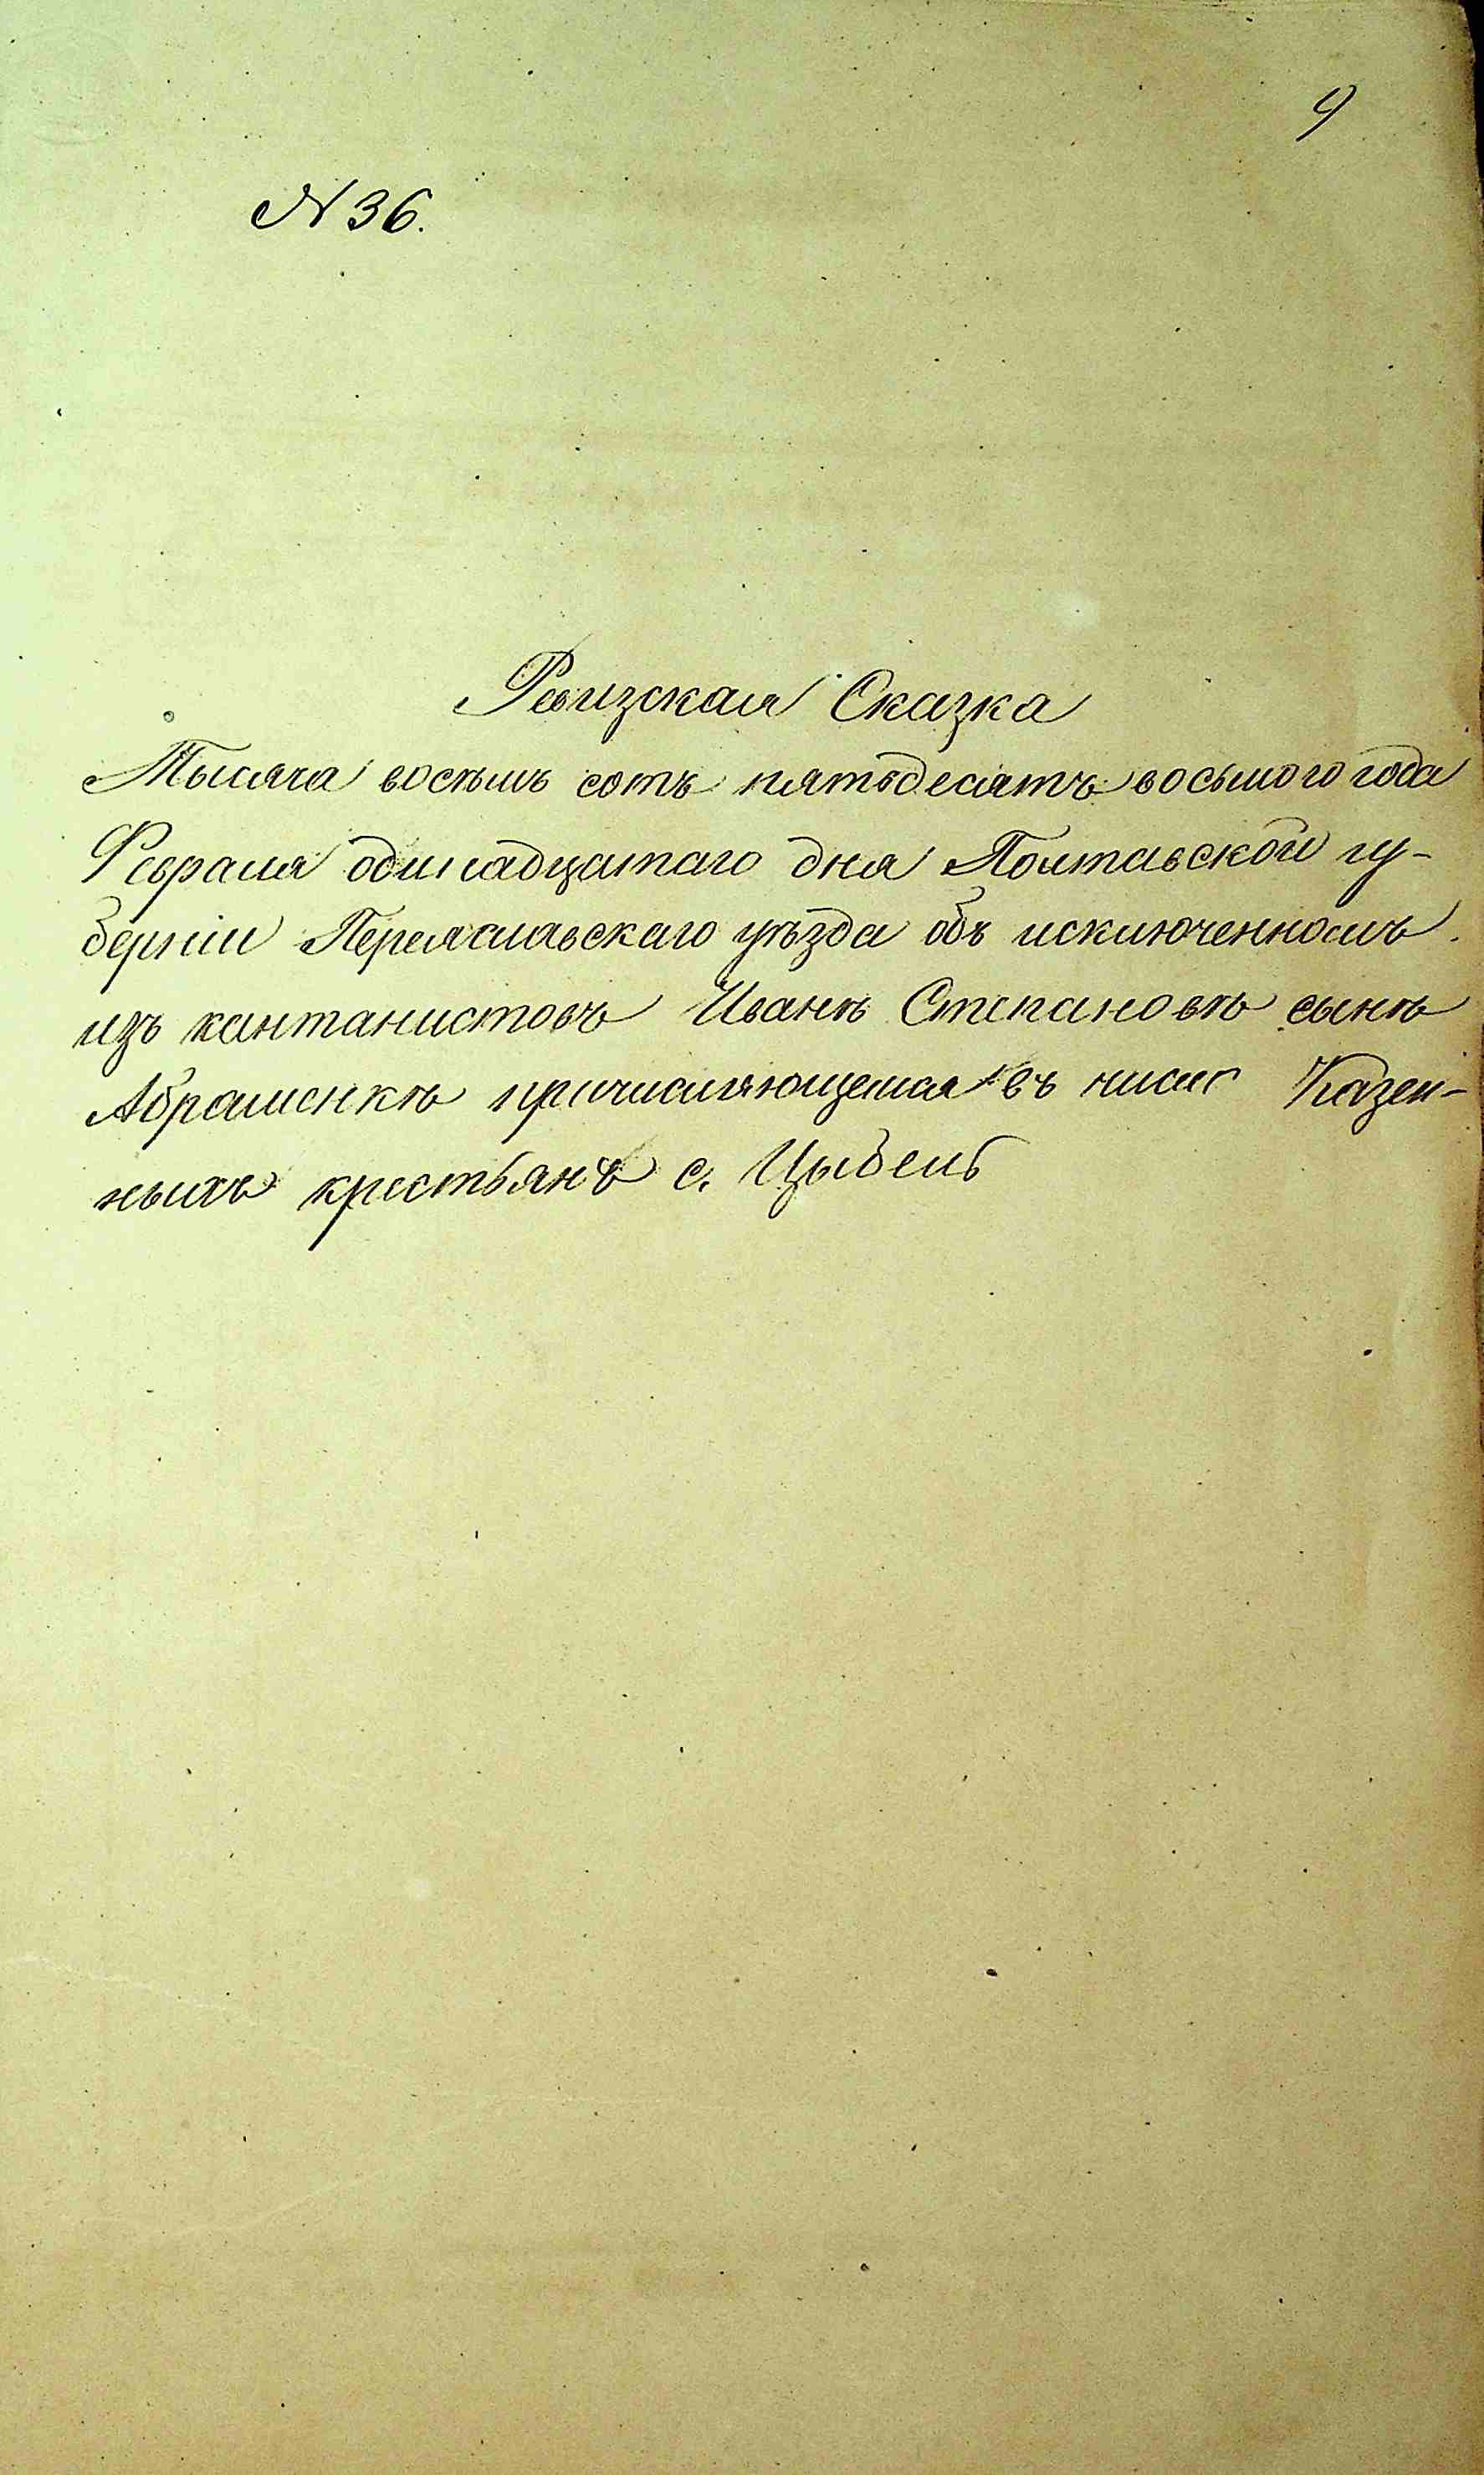 9
№ 36.
Ревизская Сказка
Тысяча восемь сотъ пятьдесятъ восьмого года
Февраля одинадцатаго дня Полтавской гу-
берніи Переяславскаго уѣзда объ исключенномъ
изъ кантанистовъ Иванѣ Степановѣ сынѣ
Абраменкѣ причисляющемся въ число Казен-
ныхъ крестьянъ с. Цыбель